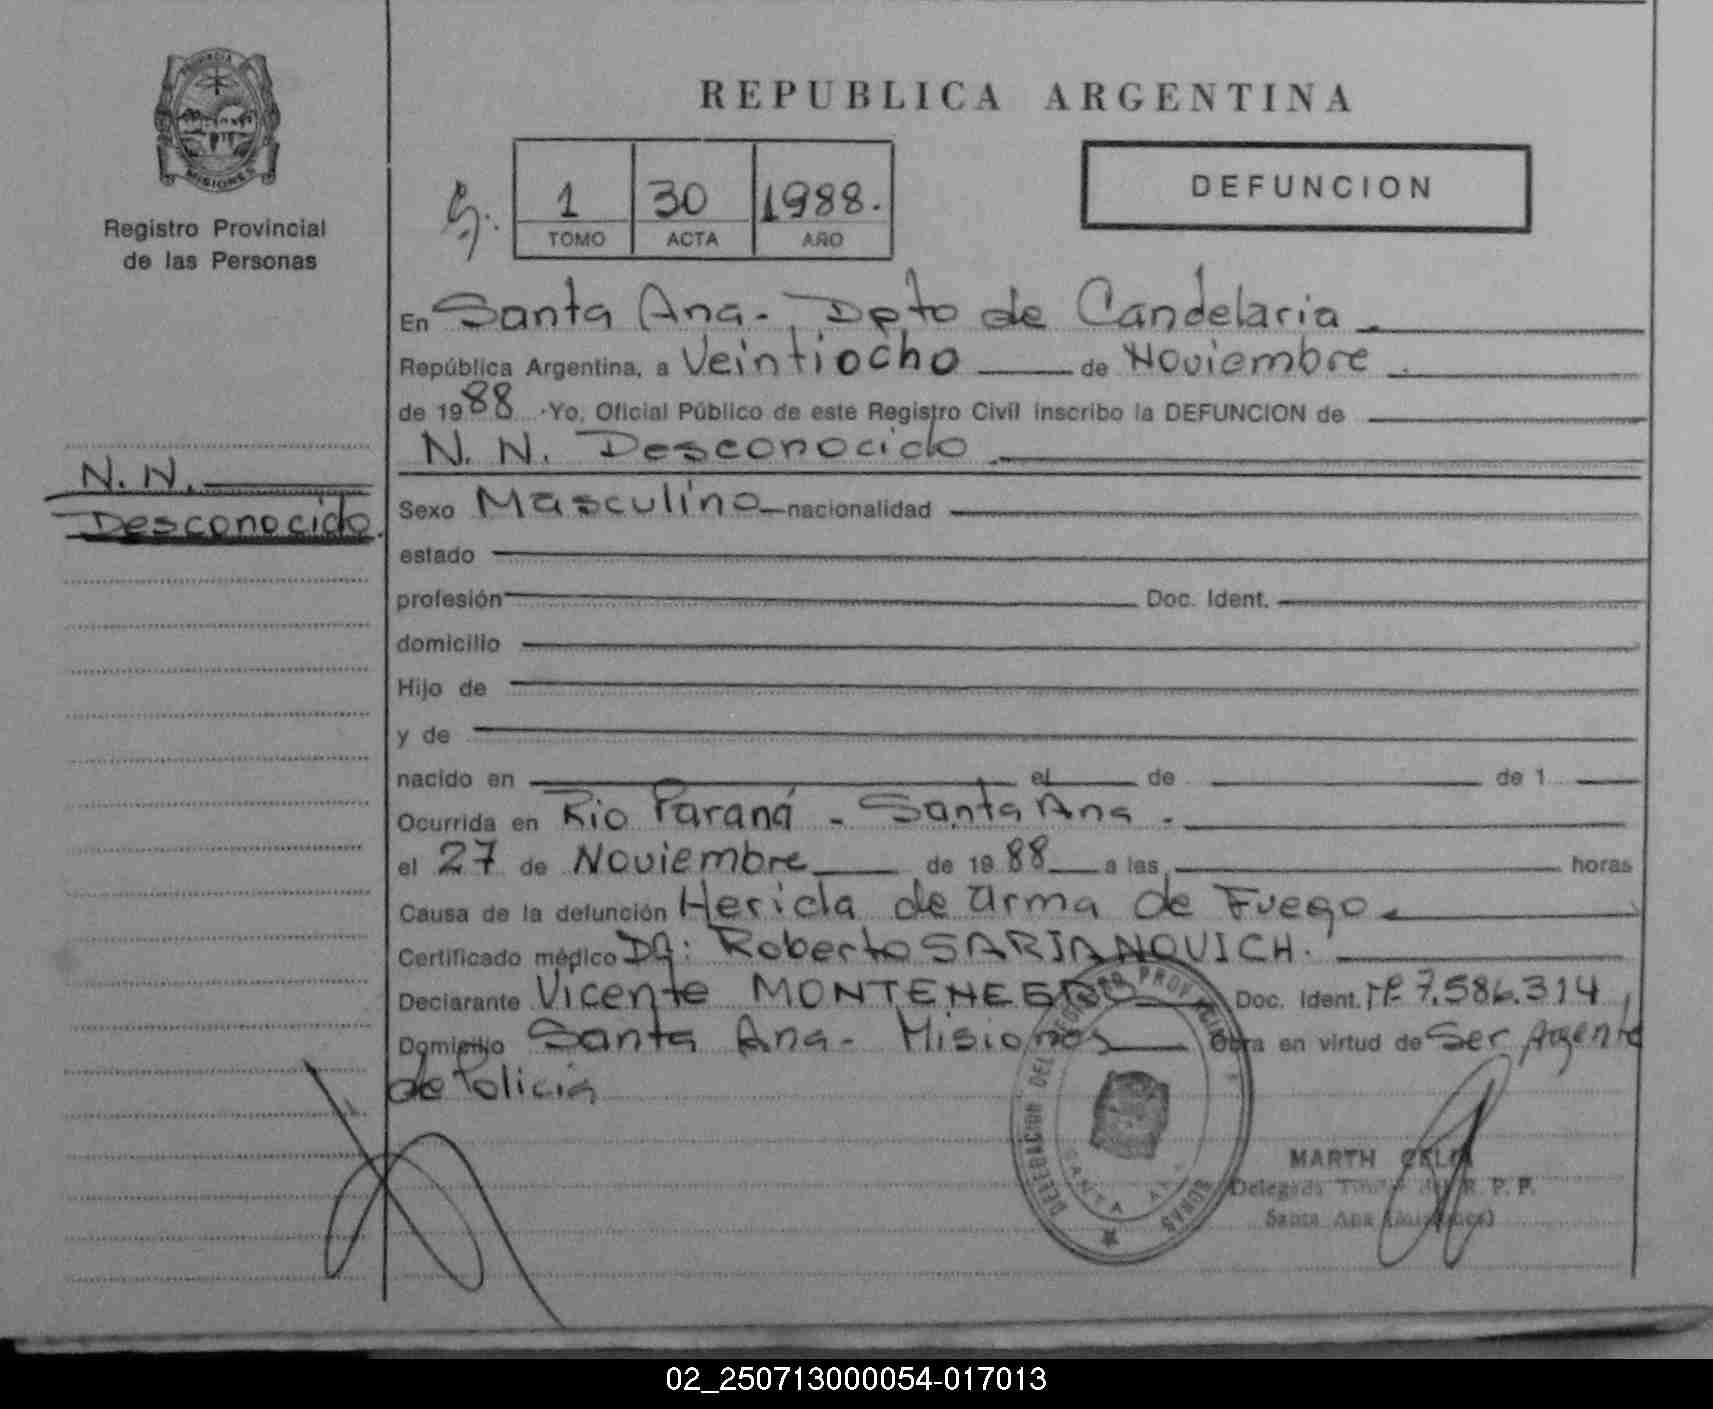 PROVINCIA
MISIONES
Registro Provincial
de las Personas
REPUBLICA ARGENTINA
1 30 1988.
TOMO ACTA AÑO
DEFUNCION
En Santa Ana - Dpto de Candelaria
República Argentina, a Veintiocho de Noviembre
de 1988 Yo, Oficial Público de este Registro Civil inscribo la DEFUNCION de
N. N. Desconocido
N. N.
Desconocido.
Sexo Masculino nacionalidad
estado
profesión Doc. Ident.
domicilio
Hijo de
y de
nacido en el de de 1
Ocurrida en Rio Paraná - Santa Ana.
el 27 de Noviembre de 1988 a las horas
Causa de la defunción Herida de arma de Fuego.
Certificado médico Roberto SARJANOVICH.
Declarante Vicente Doc. Ident. Nº 7.586.314
Domicilio Santa Ana - Misiones Obra en virtud de Ser Agente
de Policia
DELEGACION DEL PROV
SANTA
MARTH
R. P. P.
Santa Ana (Misiones)
02_250713000054-017013